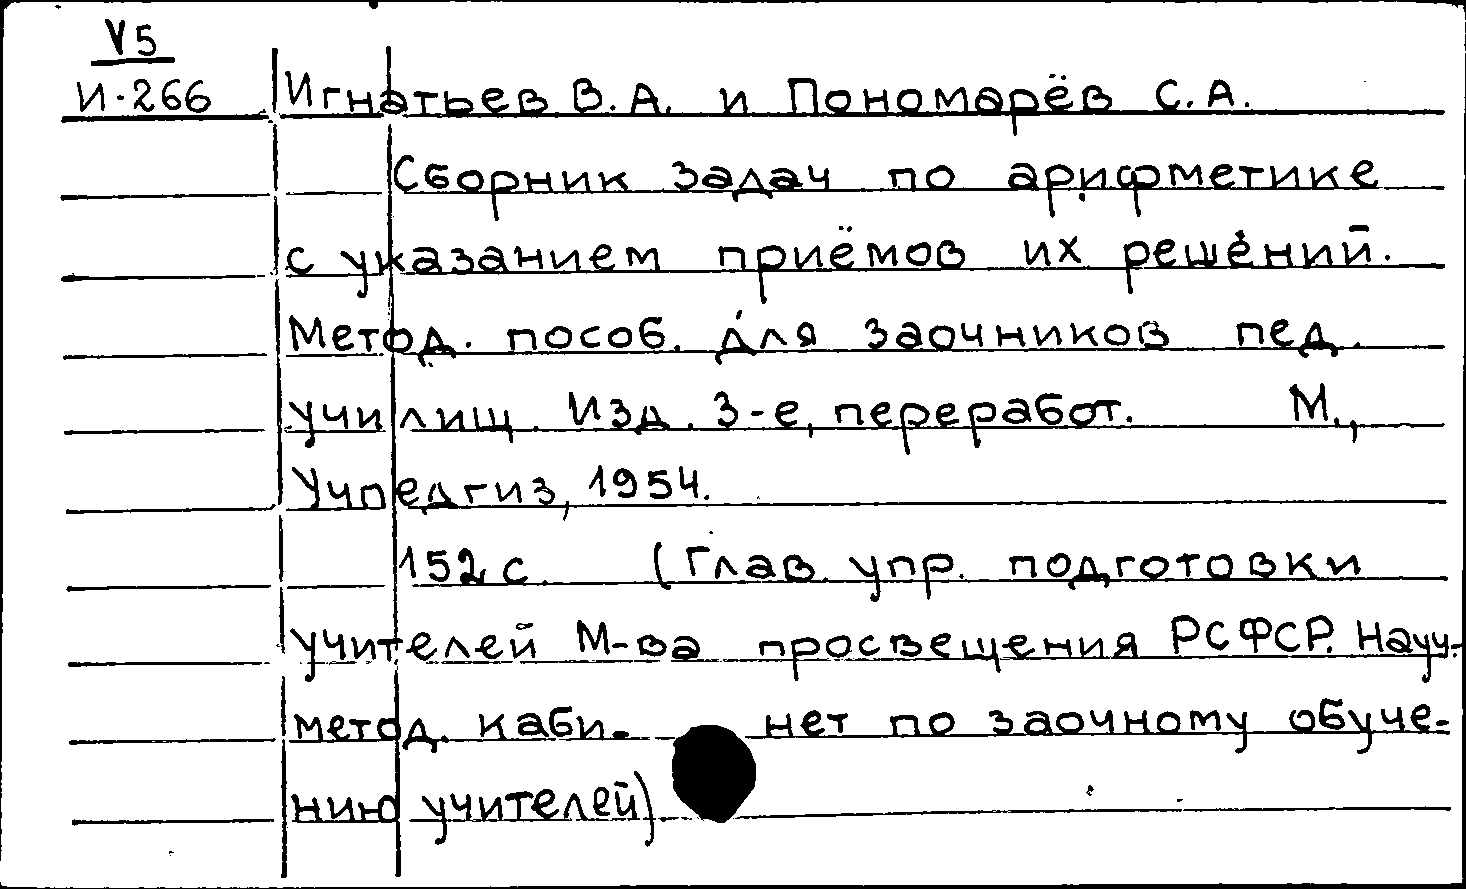 V5
И-266 Игнатьев В.А. и Пономарёв С.А.
Сборник задач по арифметике
с указанием приёмов их решений.
Метод. пособ. для заочников пед.
училищ. Изд. 3-е, переработ. М.,
Учпедгиз, 1954.
152 с. (Глав. упр. подготовки
учителей М-ва просвещения РСФСР. Науч.-
метод. каби- нет по заочному обуче-
нию учителей)